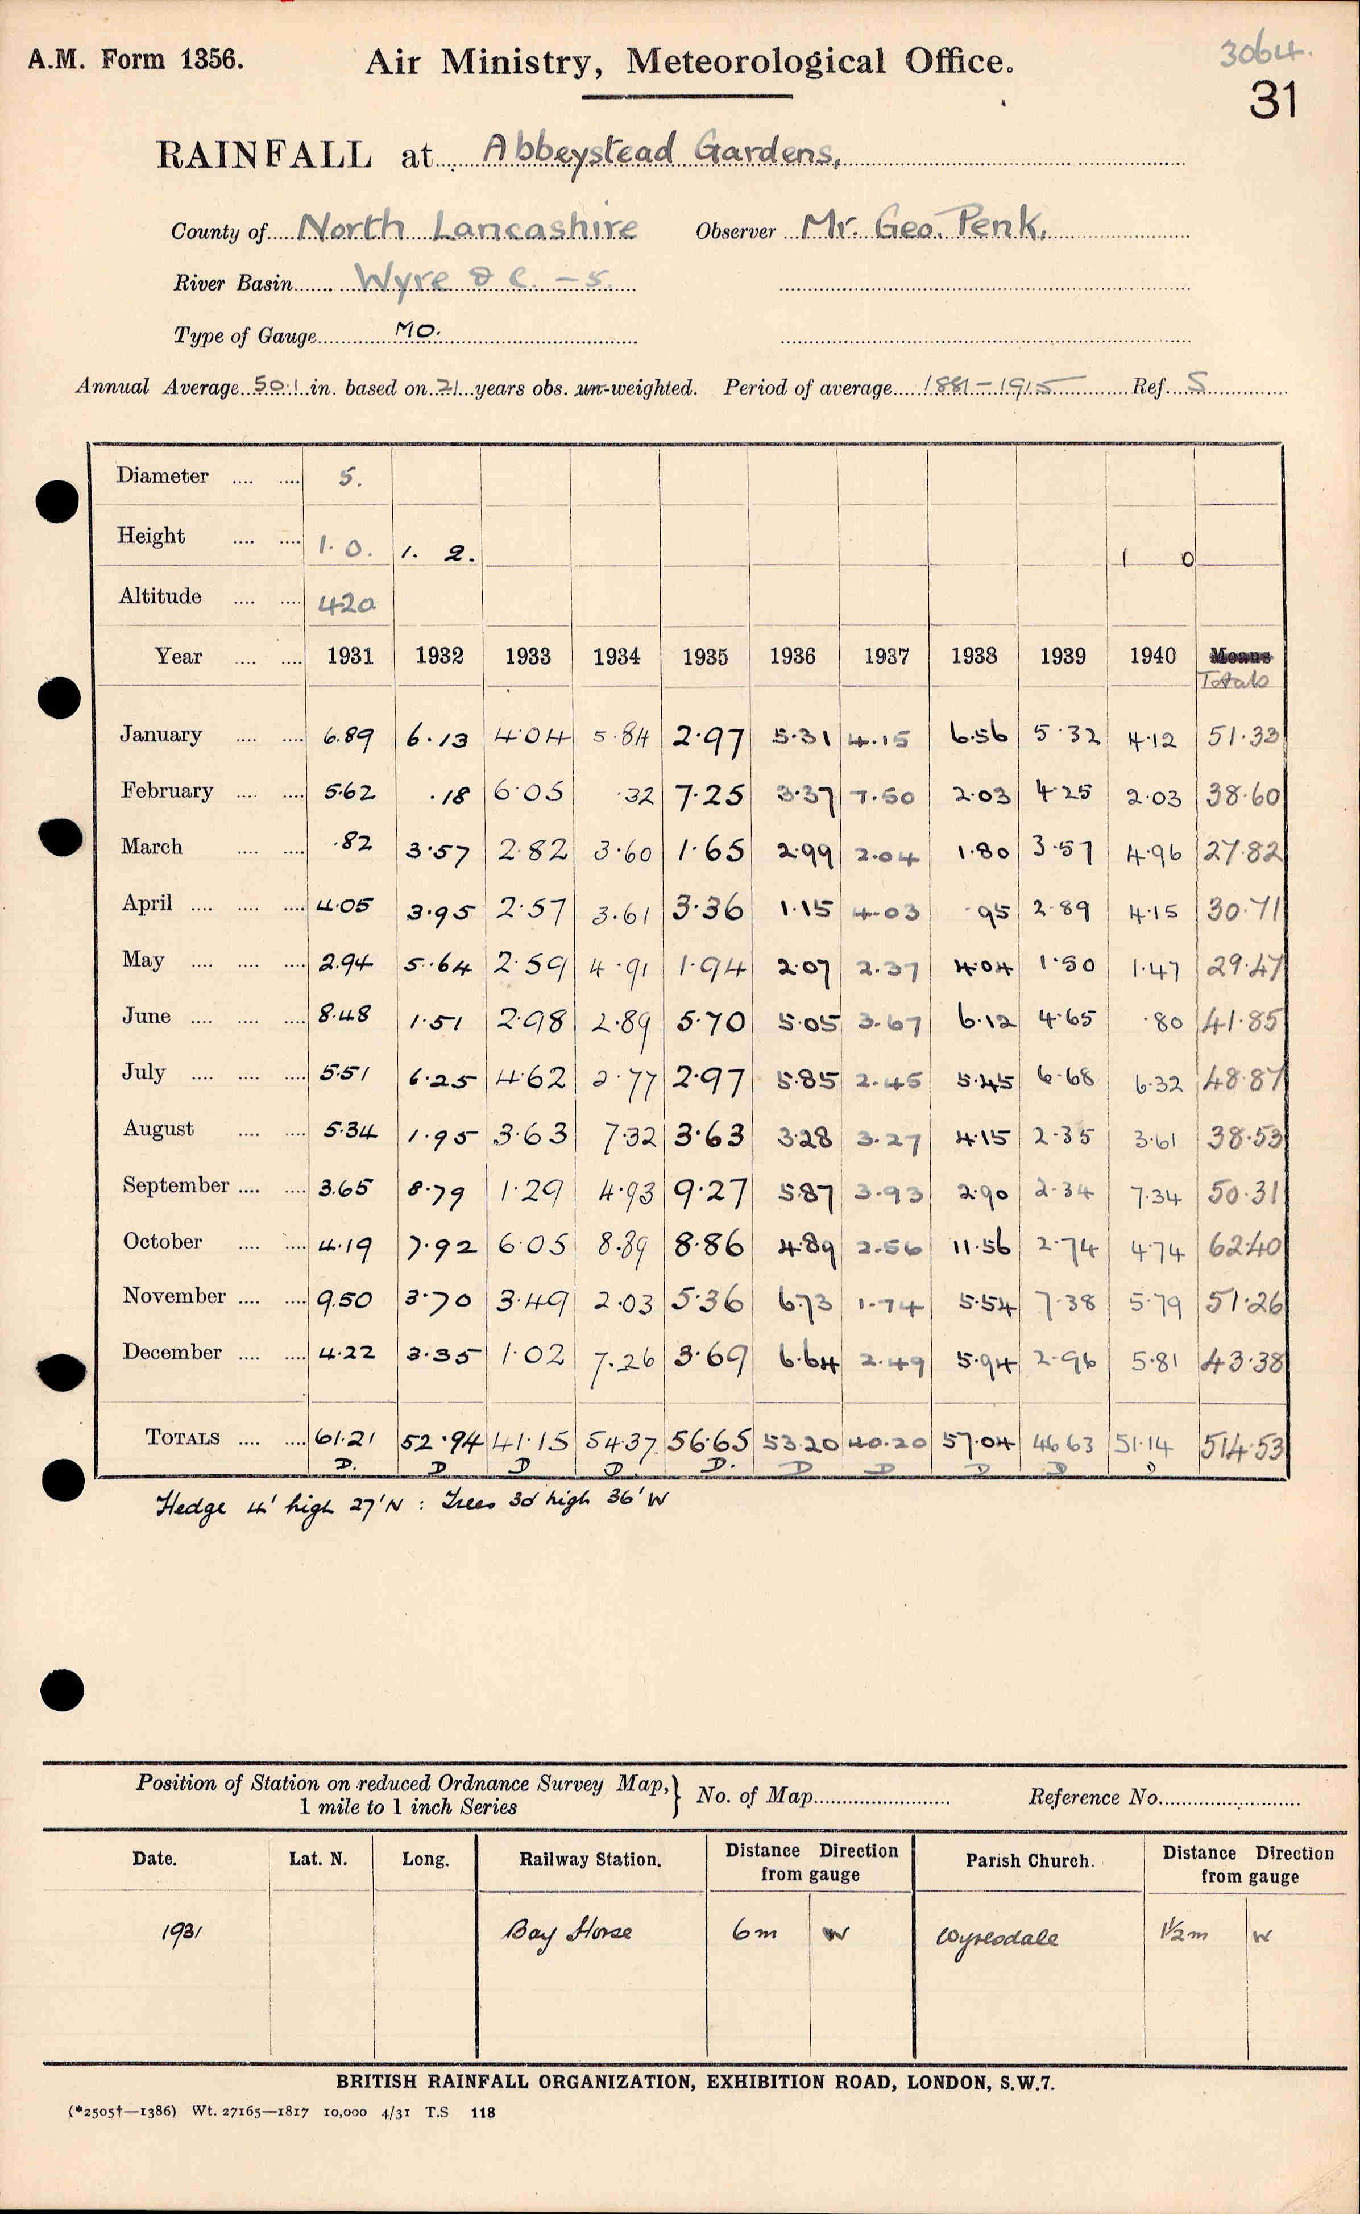 3064.
A.M. Form 1356. Air Ministry, Meteorological Office.
31
RAINFALL at Abbeystead Gardens,
County of North Lancashire Observer Mr. Geo. Penk.
River Basin Wyre & C. - 5.
Type of Gauge MO.
Annual Average 50.1 in. based on 21 years obs. un-weighted. Period of average 1881-1915 Ref. S
Diameter 5.
Height 1.0. 1. 2. 1 0
Altitude 420
Year 1931 1932 1933 1934 1935 1936 1937 1938 1939 1940 Means Totals
January 6.89 6.13 4.04 5.84 2.97 5.31 4.15 6.56 5.32 4.12 51.33
February 5.62 .18 6.05 .32 7.25 3.37 7.50 2.03 4.25 2.03 38.60
March .82 3.57 2.82 3.60 1.65 2.99 2.04 1.80 3.57 4.96 27.82
April 4.05 3.95 2.57 3.61 3.36 1.15 4.03 .95 2.89 4.15 30.71
May 2.94 5.64 2.59 4.91 1.94 2.07 2.37 4.04 1.50 1.47 29.47
June 8.48 1.51 2.98 2.89 5.70 5.05 3.67 6.12 4.65 .80 41.85
July 5.51 6.25 4.62 2.77 2.97 5.85 2.45 5.45 6.68 6.32 48.87
August 5.34 1.95 3.63 7.32 3.63 3.28 3.27 4.15 2.35 3.61 38.53
September 3.65 8.79 1.29 4.93 9.27 5.87 3.93 2.90 2.34 7.34 50.31
October 4.19 7.92 6.05 8.89 8.86 4.89 2.56 11.56 2.74 4.74 62.40
November 9.50 3.70 3.49 2.03 5.36 6.73 1.74 5.54 7.38 5.79 51.26
December 4.22 3.35 1.02 7.26 3.69 6.64 2.49 5.94 2.96 5.81 43.38
TOTALS 61.21 52.94 41.15 54.37 56.65 53.20 40.20 57.04 46.63 51.14 514.53
D. D D D. D. D D D D D
Hedge 4' high 27'N : Trees 30' high 36'W
Position of Station on reduced Ordnance Survey Map,} No. of Map Reference No.
1 mile to 1 inch Series
Date. Lat. N. Long. Railway Station. Distance Direction from gauge Parish Church. Distance Direction from gauge
1931 Bay Horse 6m W Wyresdale 1½m W
BRITISH RAINFALL ORGANIZATION, EXHIBITION ROAD, LONDON, S.W.7.
(*2505†—1386) Wt. 27165—1817 10,000 4/31 T.S 118